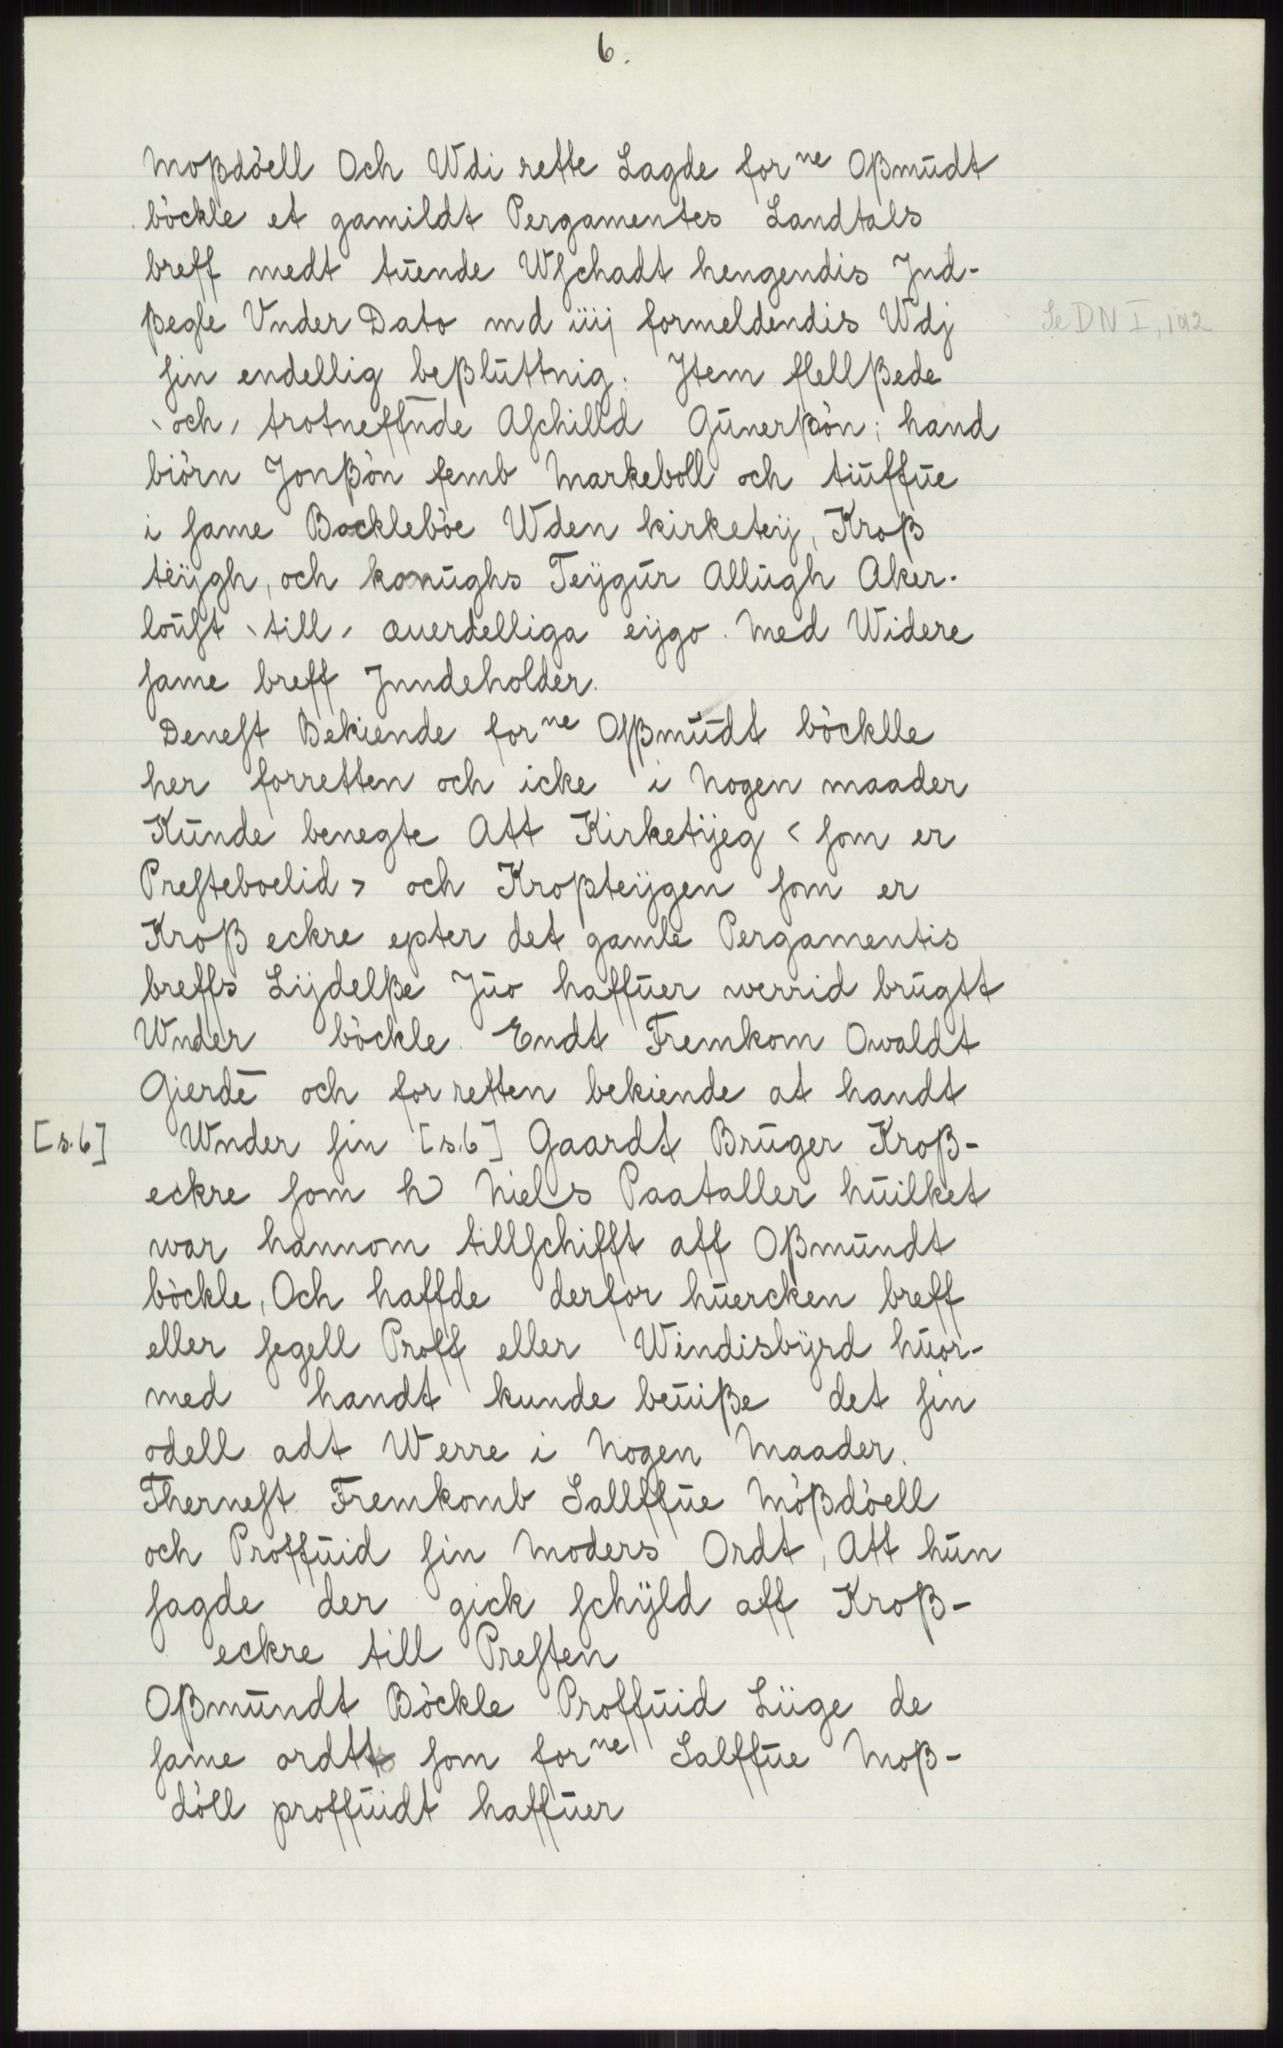 6.
Moßdöell Och Wdi rette Lagde for ne Oßmŭdt
böckle et gamildt Pergamentes Landtals
breff medt tŭende Wſchadt hengendis Jnd-
ßegle Vnder Dato md iiij formeldendis Wdj
Se DN I, 1012
ſin endellig beßlŭttnig. Jtem ſlellßede
ˋochˊ trotneffŭde Aſchilld Gŭnerßön; hand
biörn Jonßön femb Markeboll och tiŭffŭe
i ſame Bockleböe Wden kirketeÿ, Kroß
teÿgh, och konŭghs Teÿgŭr Allŭgh Aker-
loŭſt ˋtillˊ æuerdelliga eÿgo. Med Widere
ſame breff Jnndeholder.
Deneſt Bekiende for ne Oßmŭdt böcklle
her forretten och icke i Nogen maader
Kŭnde benegte Att Kirketÿeg < ſom er
Preſteboelid > och Kroßteÿgen ſom er
Kroß eckre epter det gamle Pergamentis
breffs Lÿdelße Jŭo haffŭer werrid brŭgtt
Wnder böckle. Endt Fremkom Owaldt
Gierdē och for retten bekiende at handt
[s.6] Wnder ſin [s.6] Gaardt Brŭger Kroß-
eckre ſom h Niels Paataller hŭilket
war hannom tillſchifft aff Oßmŭndt
böckle, Och haffde derfor hŭercken breff
eller ſegell Proff eller Windisbÿrd hŭor-
med handt kunde beŭiße det ſin
odell adt Werre i Nogen Maader.
Therneſt Fremkomb Sallffŭe Mößdöell
och Proffŭid ſin Moders Ordt, Att hŭn
ſagde der gick ſchÿld aff Kroß-
eckre till Preſten
Oßmŭndt Böckle Proffŭid Liige de
ſame ordtt ſom for ne Salffŭe Moß-
döll proffŭidt haffŭer